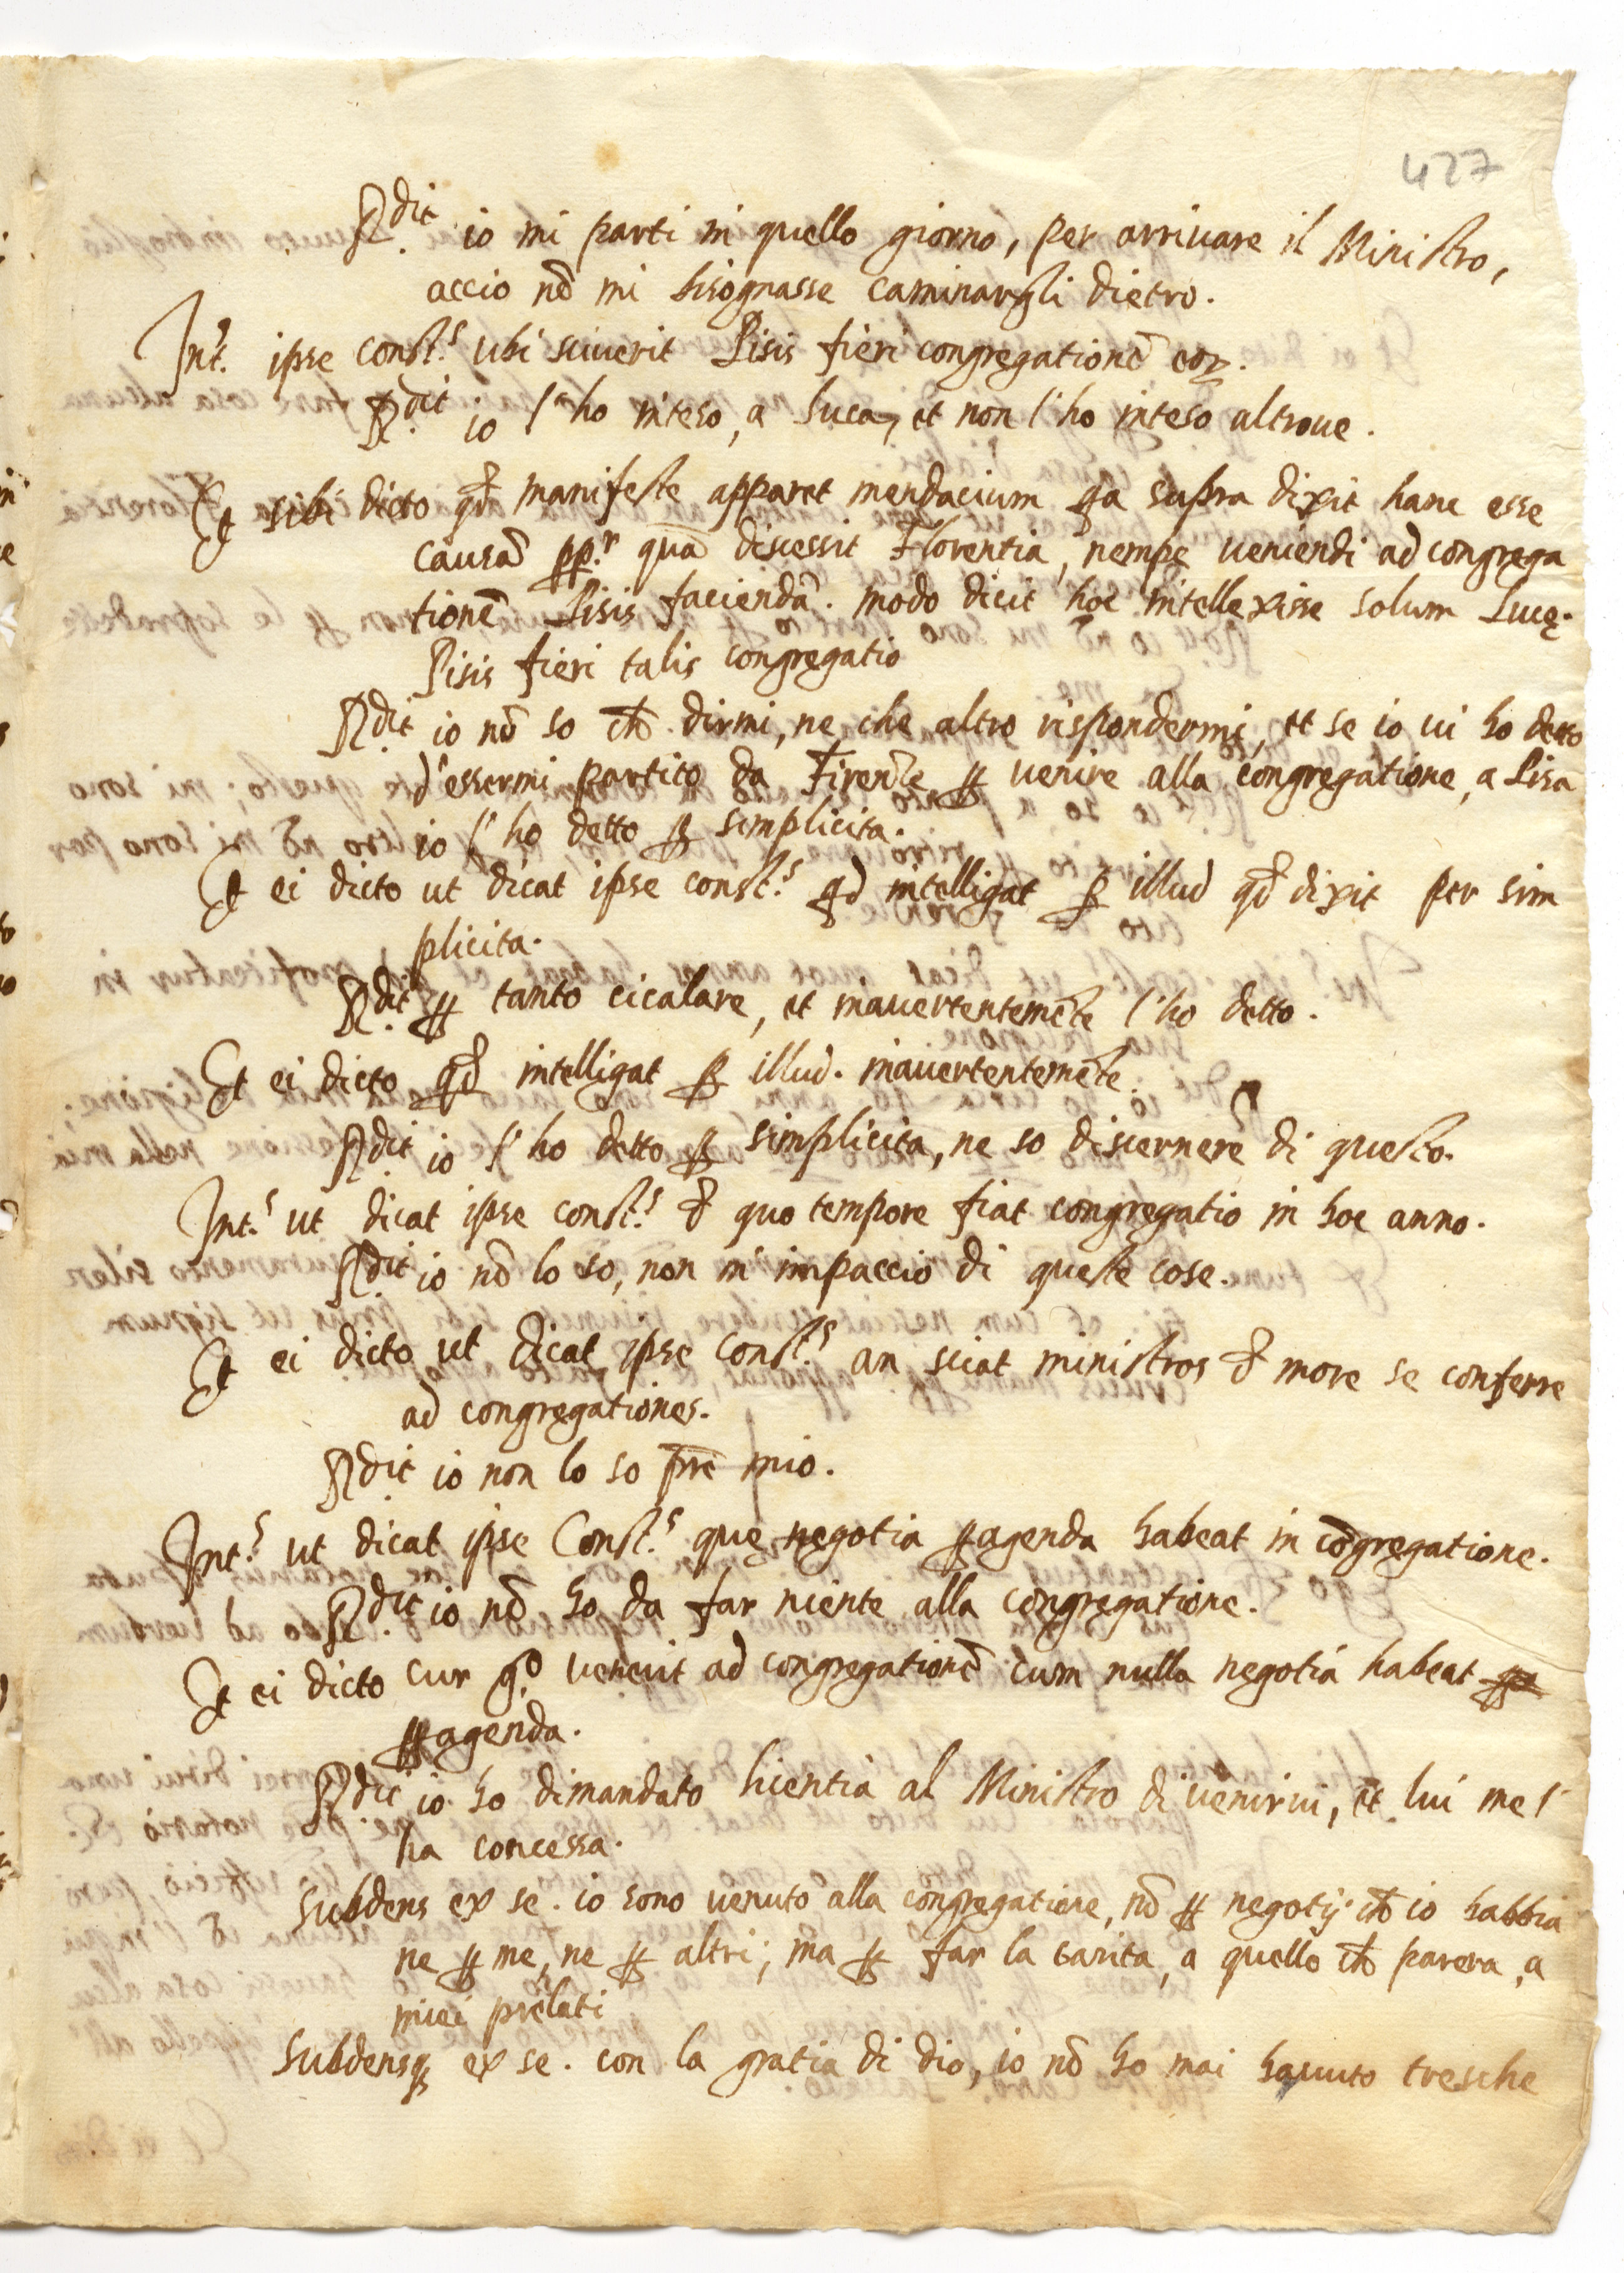 427
Rdit io mi parti in quello giorno, per arrivare il Ministro,
accio nō mi bisognasse caminargli dietro.
Int.s ipse const.s ubi sciverit Pisis fieri congregationē eoꝝ.
Rdit io l'ho inteso, a Luca, et non l'ho inteso altroue.
Et sibi dicto qđ manifeste apparet mendacium qa supra dixit hanc esse
causā pp.r quā discessit Florentia, nempe ueniendi ad congrega
tionē Pisis faciendā. modo dicit hoc intellexisse solum Lucę.
Pisis fieri talis congregatio
Rdit io nō so ch̄ dirmi, ne che altro rispondermi, et se io ui ho detto
d'essermi partito da Firenze ꝑ uenire alla congregatione, a Pisa
io l'ho detto ꝑ simplicita.
Et ei dicto ut dicat ipse const.s qd intelligat ꝑ illud qđ dixit per sim
plicita.
Rdit ꝑ tanto cicalare, et inauertentemēte l'ho detto.
Et ei dicto qđ intelligat ꝑ illud. inauertentemēte.
Rdit io l'ho detto ꝑ simplicita, ne so discernere di questo.
Int.s ut dicat ipse const.s d quo tempore fiat congregatio in hoc anno.
Rdit io nō lo so, non m'impaccio di queste cose.
Et ei dicto ut dicat ipse const.s an sciat ministros d more se conferre
ad congregationes.
Rdit io non lo so prē mio.
Int.s ut dicat ipse Const.s quę negotia ꝑagenda habeat in cōgregatione.
Rdit io nō ho da far niente alla congregatione.
Et ei dicto cur g.o uenerit ad congregationē cum nulla negotia habeat
ꝑagenda.
Rdit io ho dimandato licentia al Ministro di uenirui, et lui me l'
ha concessa.
Subdens ex se. io sono uenuto alla congregatione, nō ꝑ negotij ch̄ io habbia
ne ꝑ me, ne ꝑ altri; ma ꝑ far la carita, a quello ch̄ parera, a
miei prelati
Subdensqꝫ ex se. con la gratia di dio, io nō ho mai hauuto tresche